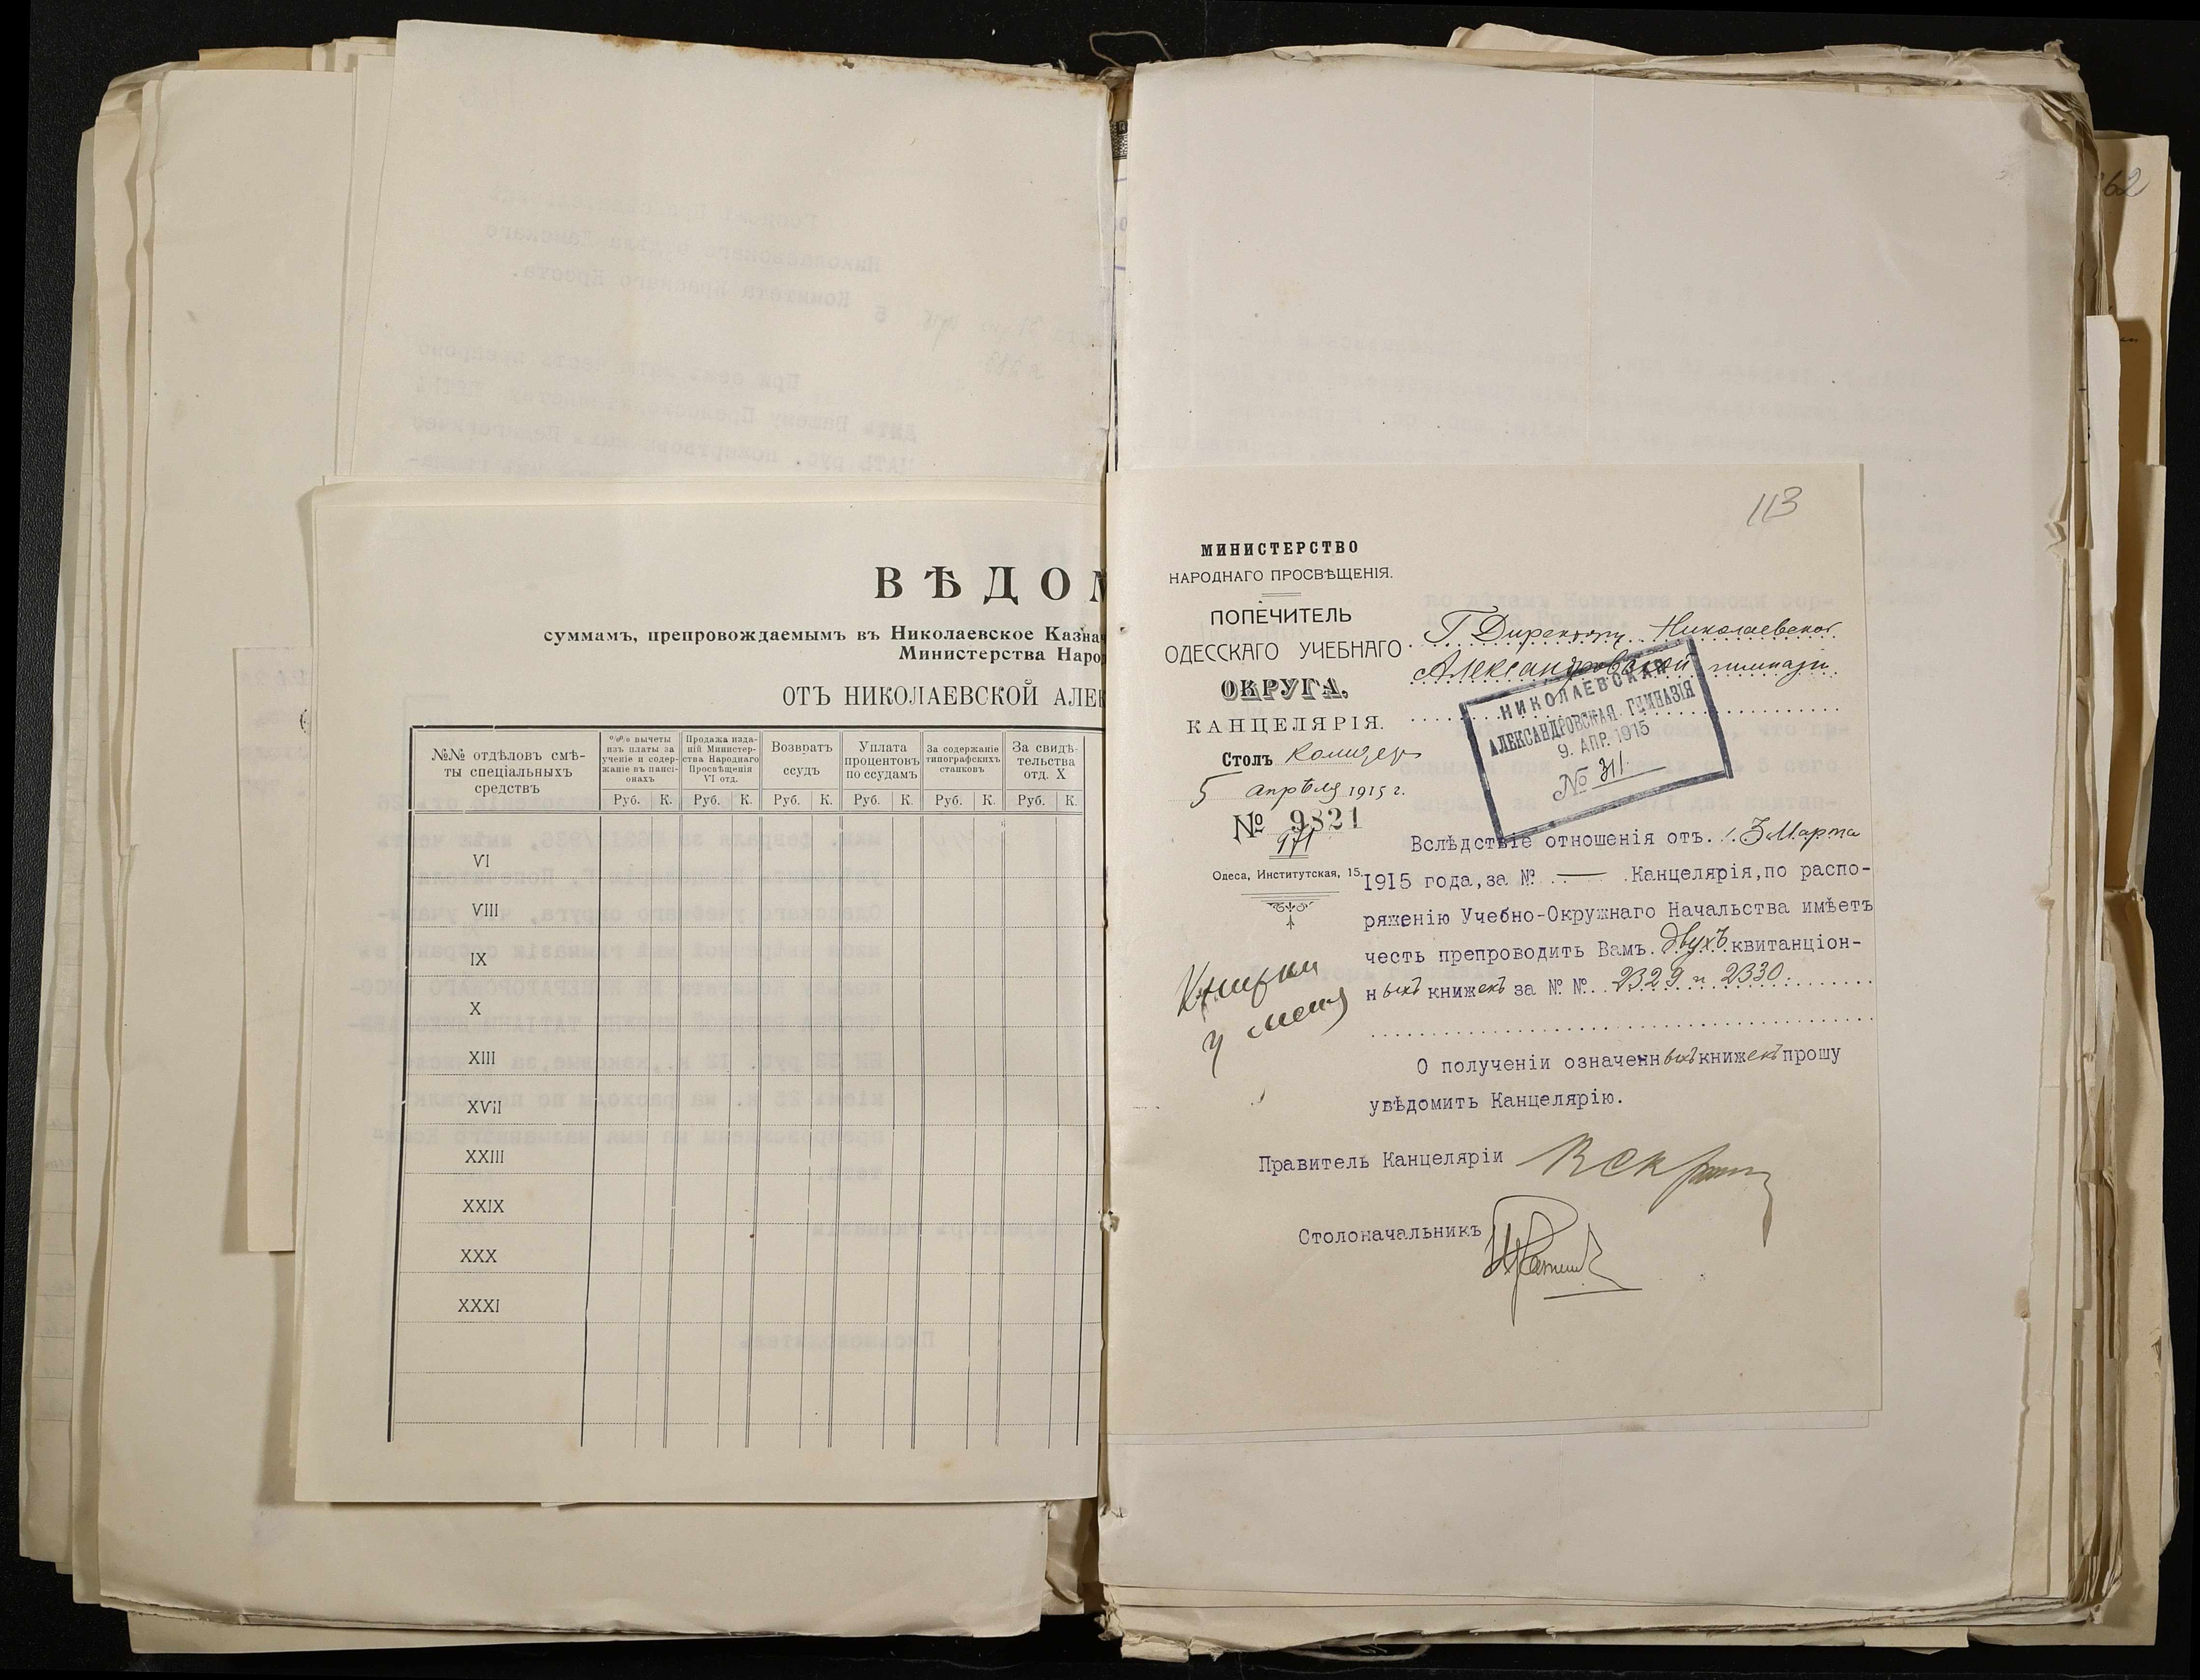 ВѢДОМ
суммамъ, препровождаемымъ въ Николаевское Казнач
Министерства Народ
ОТЪ НИКОЛАЕВСКОЙ АЛЕК
№№ отдѣловъ смѣ-
ты спеціальныхъ
средствъ
%% вычеты
изъ платы за
ученіе и содер-
жаніе въ пансі-
онахъ
Продажа изда-
ній Министер-
ства Народнаго
Просвѣщенія
VI отд.
Возвратъ
ссудъ
Уплата
процентовъ
по ссудамъ
За содержаніе
типографскихъ
станковъ
За свидѣ-
тельства
отд. X
Руб. К. Руб. К. Руб. К. Руб. К. Руб. К. Руб. К.
VI
VIII
IX
X
XIII
XVII
XXIII
XXIX
XXX
XXXI
62
113
МИНИСТЕРСТВО
НАРОДНАГО ПРОСВѢЩЕНІЯ.
ПОПЕЧИТЕЛЬ
ОДЕССКАГО УЧЕБНАГО
ОКРУГА.
КАНЦЕЛЯРІЯ.
Столъ
5 апрѣля 1915 г.
№ 9821
971
Одеса, Институтская, 15.
Г. Директору Николаевской
Александровской гимназіи.
НИКОЛАЕВСКАЯ
АЛЕКСАНДРОВСКАЯ ГИМНАЗІЯ
9. АПР. 1915
№ 311
Вслѣдствіе отношенія отъ 3 Марта
1915 года, за № — Канцелярія, по распо-
ряженію Учебно-Окружнаго Начальства имѣетъ
честь препроводить Вамъ двухъ квитанціон-
ныхъ книжекъ за № № 2329 и 2330.
О полученіи означенныхъ книжекъ прошу
увѣдомить Канцелярію.
Книжки
у меня
Правитель Канцеляріи
Столоначальникъ